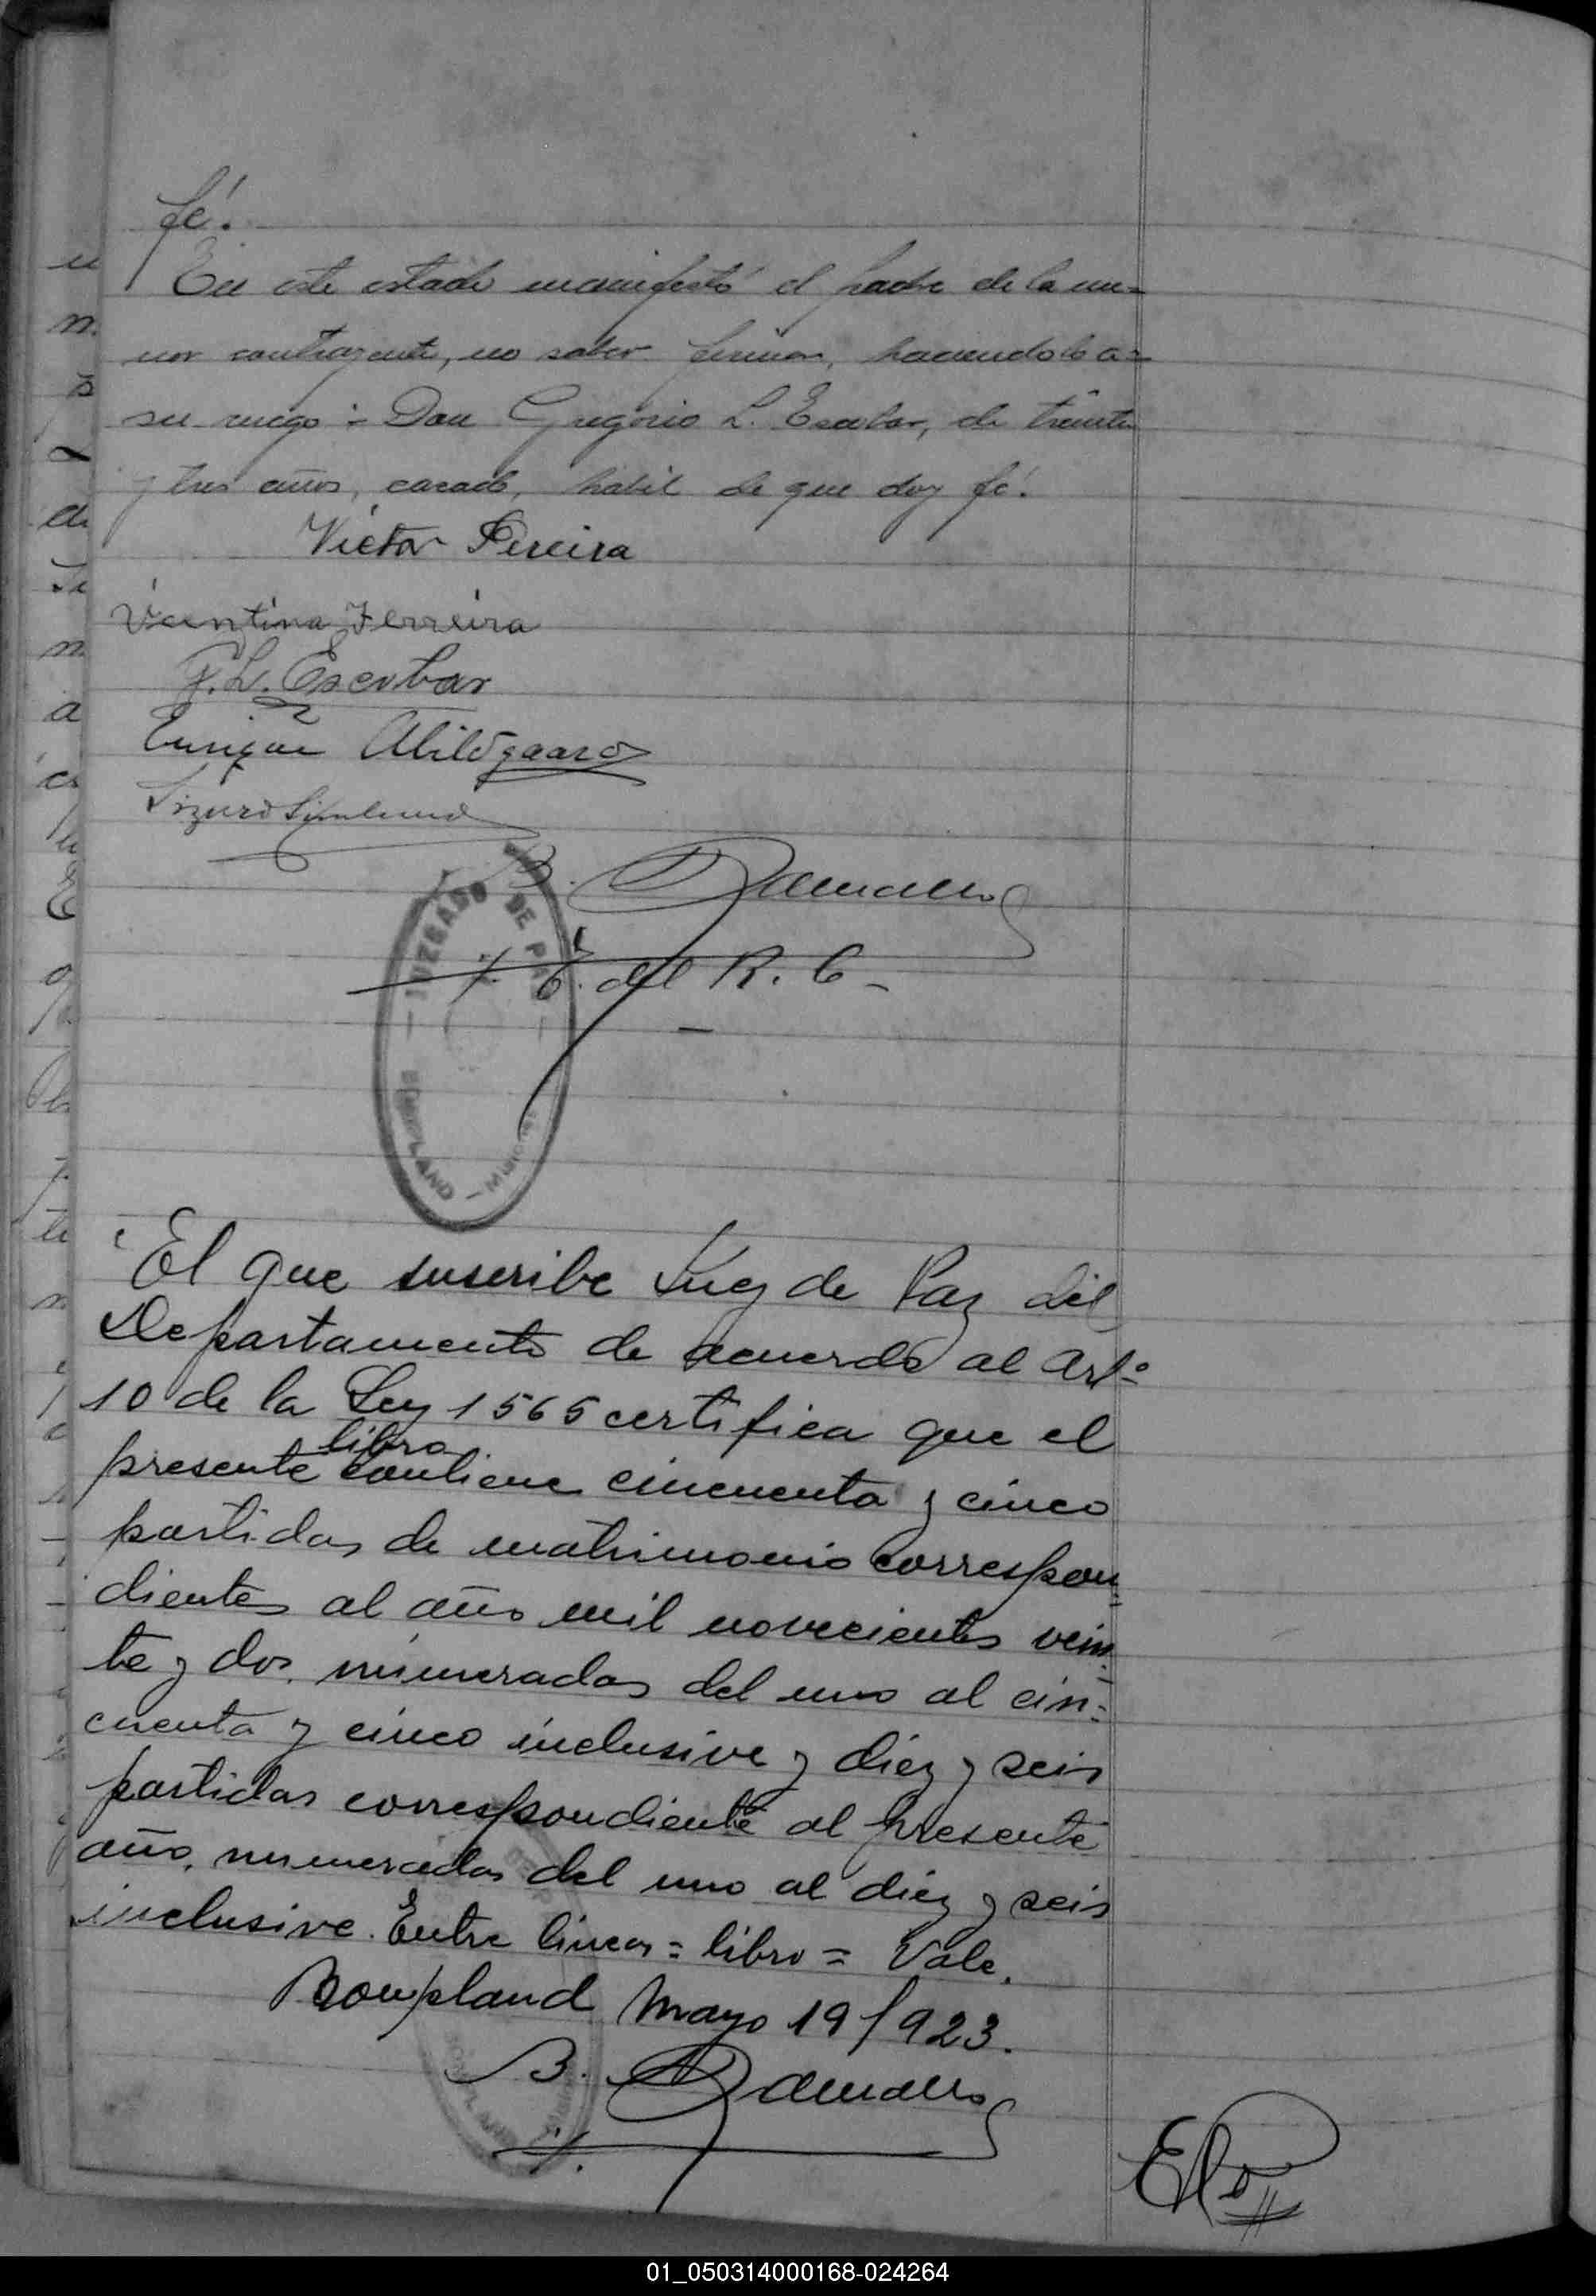 fé.
En este estado manifestó el padre de la me=
nor contrayente, no saber firmar, haciendolo a=
su ruego = Don Gregorio L. Escobar, de treinta
y tres años, casado, hábil de que doy fé.
Victor Pereira
Ferreira
G. L. Escobar
Enrique Abildgaard
B.
E. del R. C -
JUZGADO DE PAZ
BONPLAND - Misiones
El que suscribe Juez de Paz del
Departamento de acuerdo al Artº
10 de la Ley 1565 certifica que el
libro
presente contiene cincuenta y cinco
partidas de matrimonio correspon=
dientes al año mil novecientos vein=
te y dos, númeradas del uno al cin=
cuenta y cinco inclusive y diez y seis
partidas correspondiente al presente
año, numeradas del uno al diez y seis
inclusive. Entre lineas = libro = Vale.
Bonpland Mayo 19/923.
B.
BONPLAND
01_050314000168-024264